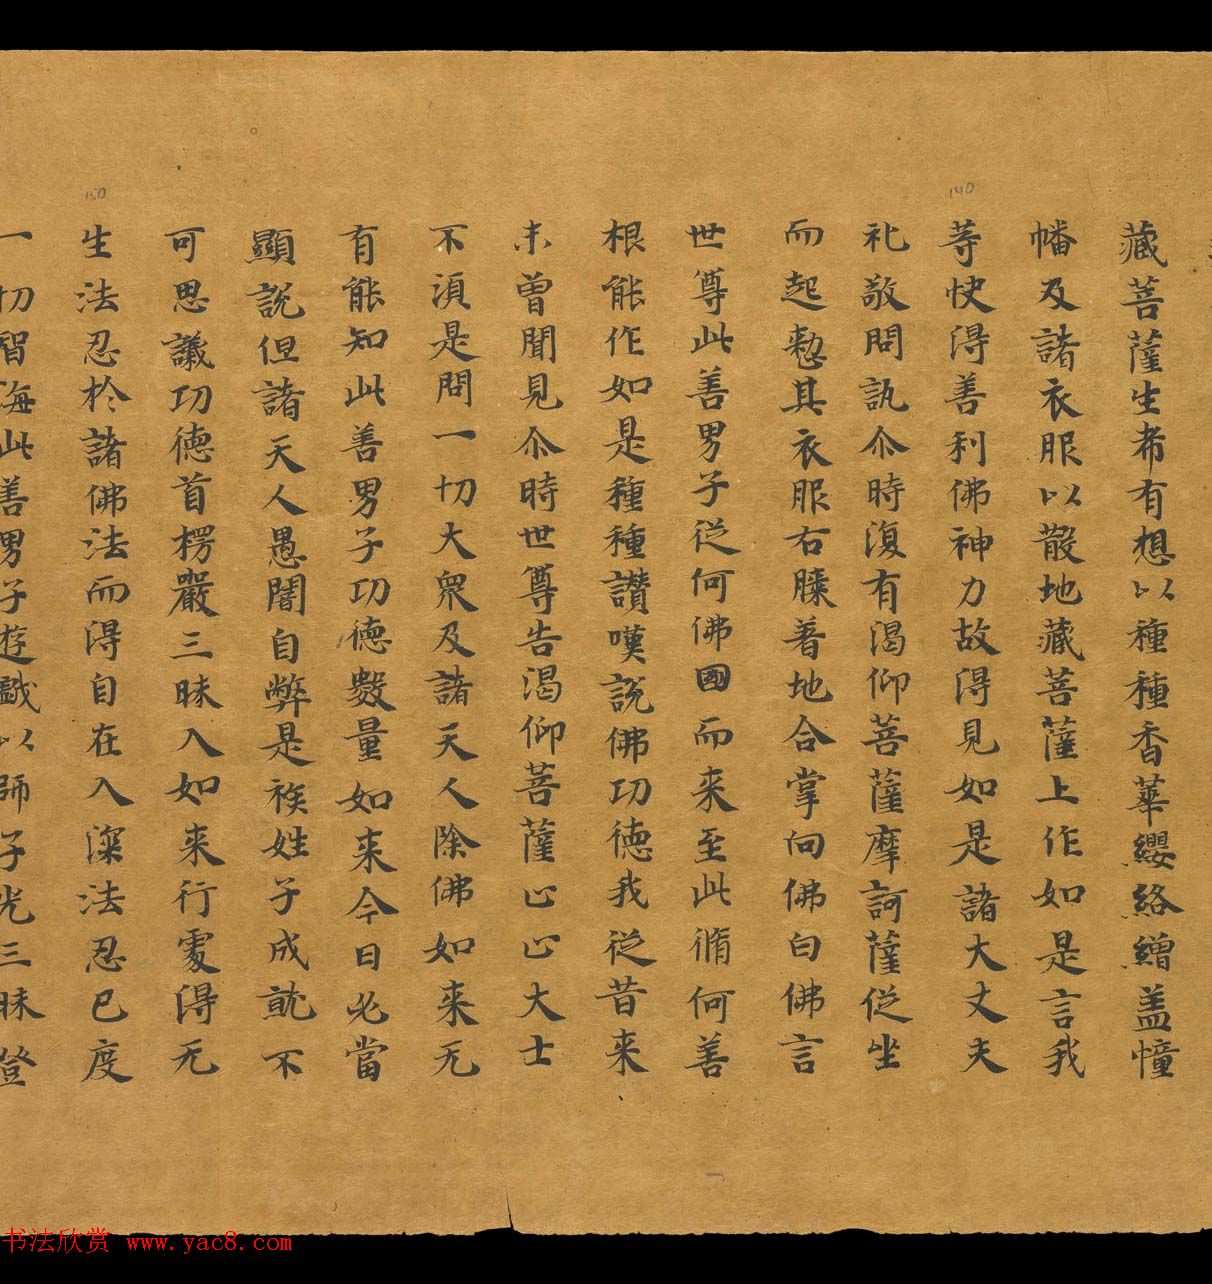 140
150
藏菩薩生希有想以種種香華纓絡繒盖幢
幡及諸衣服以散地藏菩薩上作如是言我
等快得善利佛神力故得見如是諸大丈夫
礼敬問訊尒時復有渴仰菩薩摩訶薩從坐
而起整其衣服右膝著地合掌向佛白佛言
世尊此善男子從何佛國而来至此脩何善
根能作如是種種讃嘆說佛功德我從昔来
未曾聞見尒時世尊告渴仰菩薩止止大士
不湏是問一切大衆及諸天人除佛如来无
有能知此善男子功德數量如来今日必當
顯說但諸天人愚闇自弊是族姓子成就不
可思議功德首楞嚴三昧入如来行處得无
生法忍於諸佛法而得自在入深法忍已度
一切智海此善男子遊戲以師子光三昧登
书法欣赏 www.yac8.com